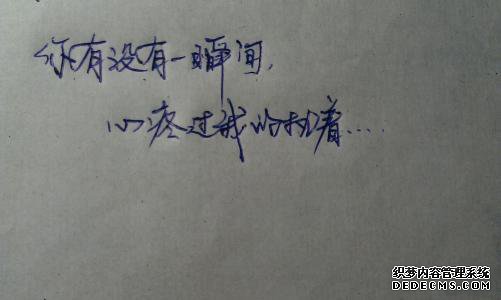 你有没有一瞬间,
心疼过我的执着....
织梦内容管理系统
DEDECMS.COM